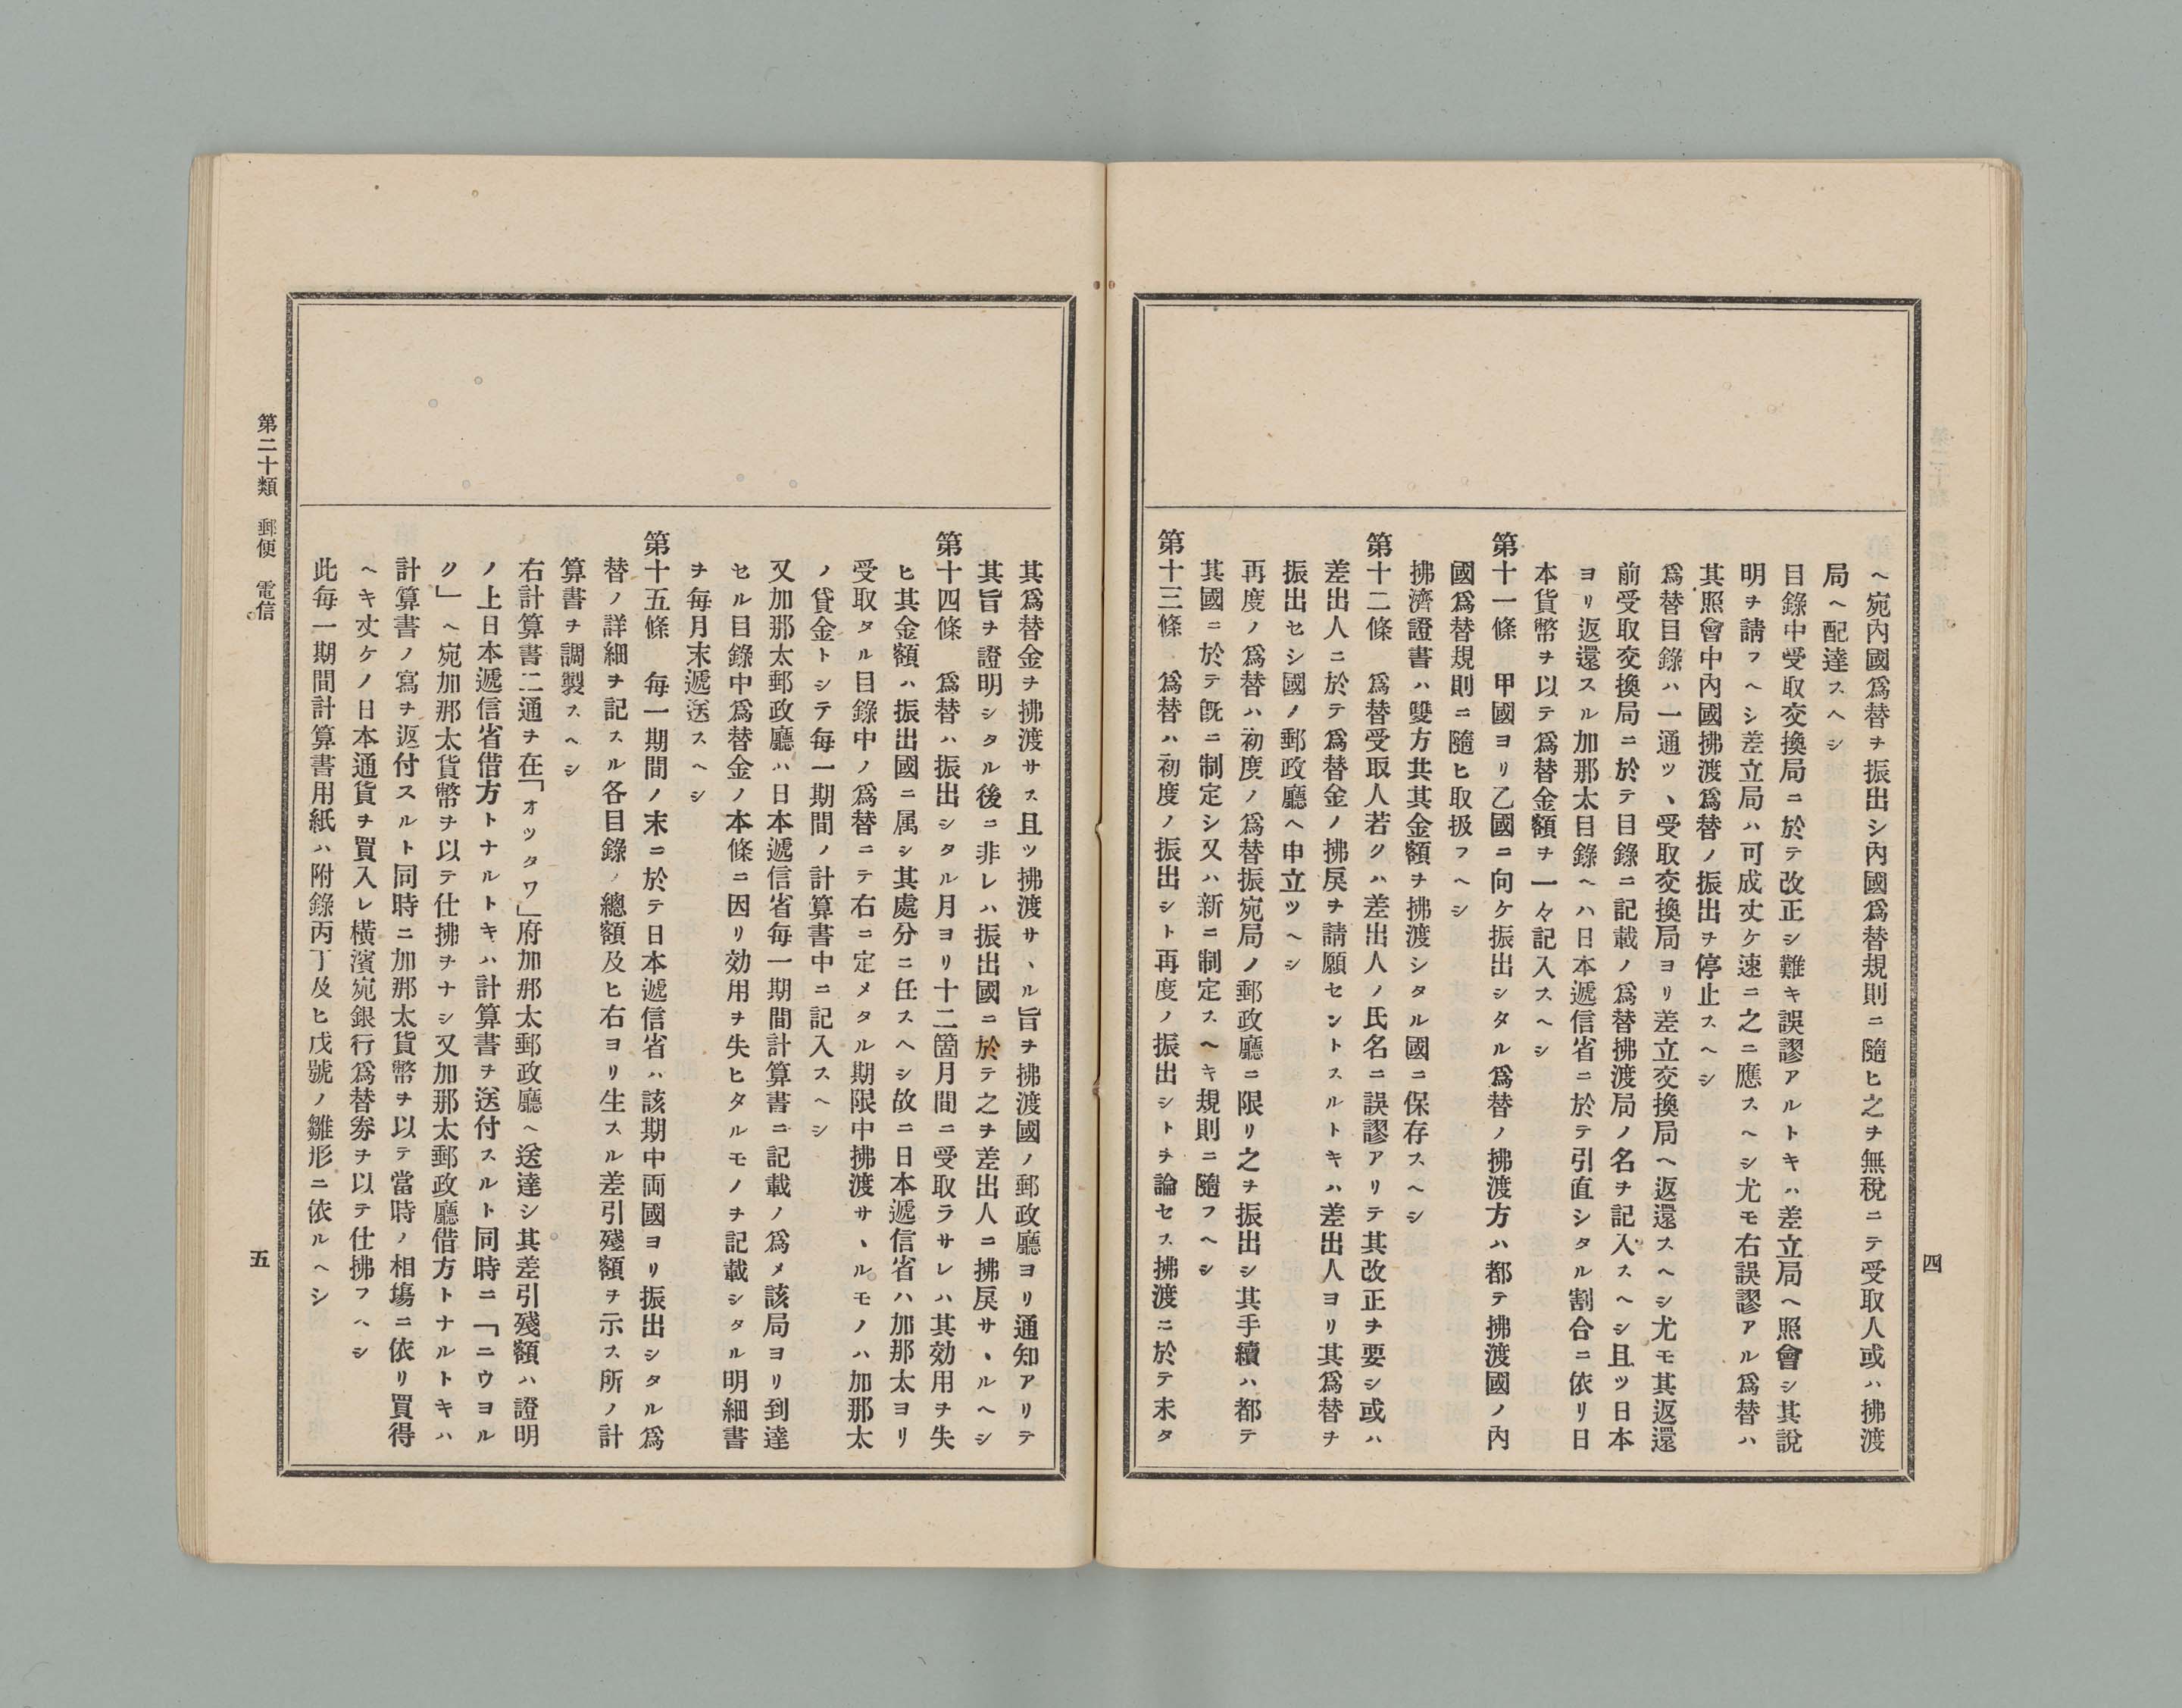 四
ヘ宛內國爲替ヲ振出シ內國爲替規則ニ隨ヒ之ヲ無稅ニテ受取人或ハ拂渡
局ヘ配達スヘシ
目錄中受取交換局ニ於テ改正シ難キ誤謬アルトキハ差立局ヘ照會シ其說
明ヲ請フヘシ差立局ハ可成丈ケ速ニ之ニ應スヘシ尤モ右誤謬アル爲替ハ
其照會中內國拂渡爲替ノ振出ヲ停止スヘシ
爲替目錄ハ一通ツヽ受取交換局ヨリ差立交換局ヘ返還スヘシ尤モ其返還
前受取交換局ニ於テ目錄ニ記載ノ爲替拂渡局ノ名ヲ記入スヘシ且ツ日本
ヨリ返還スル加那太目錄ヘハ日本遞信省ニ於テ引直シタル割合ニ依リ日
本貨幣ヲ以テ爲替金額ヲ一々記入スヘシ
第十一條 甲國ヨリ乙國ニ向ケ振出シタル爲替ノ拂渡方ハ都テ拂渡國ノ內
國爲替規則ニ隨ヒ取扱フヘシ
拂濟證書ハ雙方共其金額ヲ拂渡シタル國ニ保存スヘシ
第十二條 爲替受取人若クハ差出人ノ氏名ニ誤謬アリテ其改正ヲ要シ或ハ
差出人ニ於テ爲替金ノ拂戾ヲ請願セントスルトキハ差出人ヨリ其爲替ヲ
振出セシ國ノ郵政廳ヘ申立ツヘシ
再度ノ爲替ハ初度ノ爲替振宛局ノ郵政廳ニ限リ之ヲ振出シ其手續ハ都テ
其國ニ於テ既ニ制定シ又ハ新ニ制定スヘキ規則ニ隨フヘシ
第十三條 爲替ハ初度ノ振出シト再度ノ振出シトヲ論セス拂渡ニ於テ未タ
其爲替金ヲ拂渡サス且ツ拂渡サヽル旨ヲ拂渡國ノ郵政廳ヨリ通知アリテ
其旨ヲ證明シタル後ニ非レハ振出國ニ於テ之ヲ差出人ニ拂戾サヽルヘシ
第十四條 爲替ハ振出シタル月ヨリ十二箇月間ニ受取ラサレハ其効用ヲ失
ヒ其金額ハ振出國ニ属シ其處分ニ任スヘシ故ニ日本遞信省ハ加那太ヨリ
受取タル目錄中ノ爲替ニテ右ニ定メタル期限中拂渡サヽルモノハ加那太
ノ貸金トシテ每一期間ノ計算書中ニ記入スヘシ
又加那太郵政廳ハ日本遞信省每一期間計算書ニ記載ノ爲メ該局ヨリ到達
セル目錄中爲替金ノ本條ニ因リ効用ヲ失ヒタルモノヲ記載シタル明細書
ヲ每月末遞送スヘシ
第十五條 每一期間ノ末ニ於テ日本遞信省ハ該期中両國ヨリ振出シタル爲
替ノ詳細ヲ記スル各目錄ノ總額及ヒ右ヨリ生スル差引殘額ヲ示ス所ノ計
算書ヲ調製スヘシ
右計算書二通ヲ在「オッタワ」府加那太郵政廳ヘ送達シ其差引殘額ハ證明
ノ上日本遞信省借方トナルトキハ計算書ヲ送付スルト同時ニ「ニウヨル
ク」ヘ宛加那太貨幣ヲ以テ仕拂ヲナシ又加那太郵政廳借方トナルトキハ
計算書ノ寫ヲ返付スルト同時ニ加那太貨幣ヲ以テ當時ノ相塲ニ依リ買得
ヘキ丈ケノ日本通貨ヲ買入レ橫濱宛銀行爲替劵ヲ以テ仕拂フヘシ
此每一期間計算書用紙ハ附錄丙丁及ヒ戊號ノ雛形ニ依ルヘシ
第二十類 郵便 電信
五